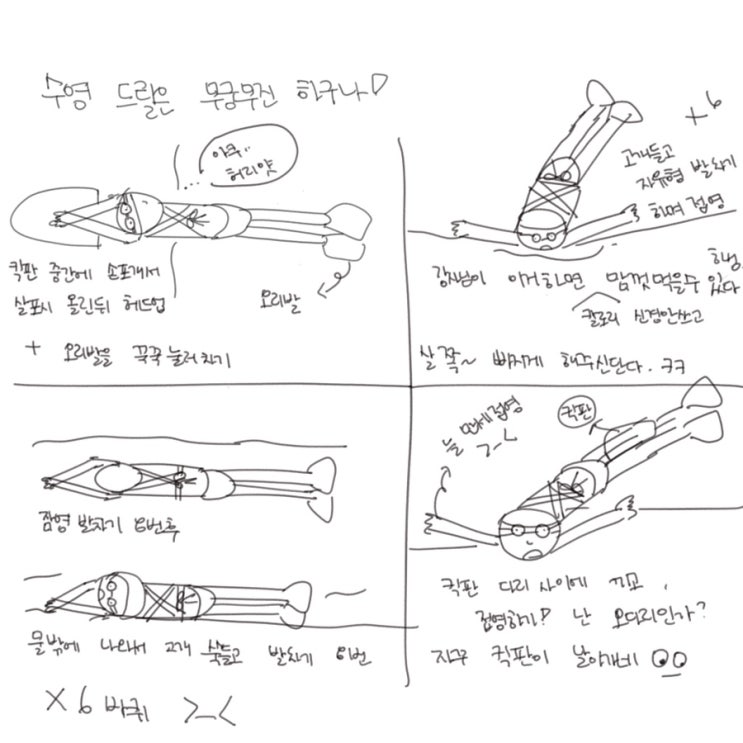 수영 드릴은 무궁무진 하구나!
아쿠..
허리얏
킥판 중간에 손포개서
살포시 올린뒤 헤드업
+ 오리발을 꾹꾹 눌러차기
오리발
+6
고개들고
자유형 발차기
하며 접영
강사님이 이거하면 맘껏먹을수 있다
하넹
칼로리 신경안쓰고
살 쫙~ 빠지게 해주신단다. ㅋㅋ
잠영 발차기 6번후
물밖에 나와서 고개 쑥들고 발차기 6번
×6 바퀴 >_<
늘 만세접영
>_<
킥판
킥판 다리 사이에 끼고,
접영하기! 난 오다리인가?
자꾸 킥판이 날아가네